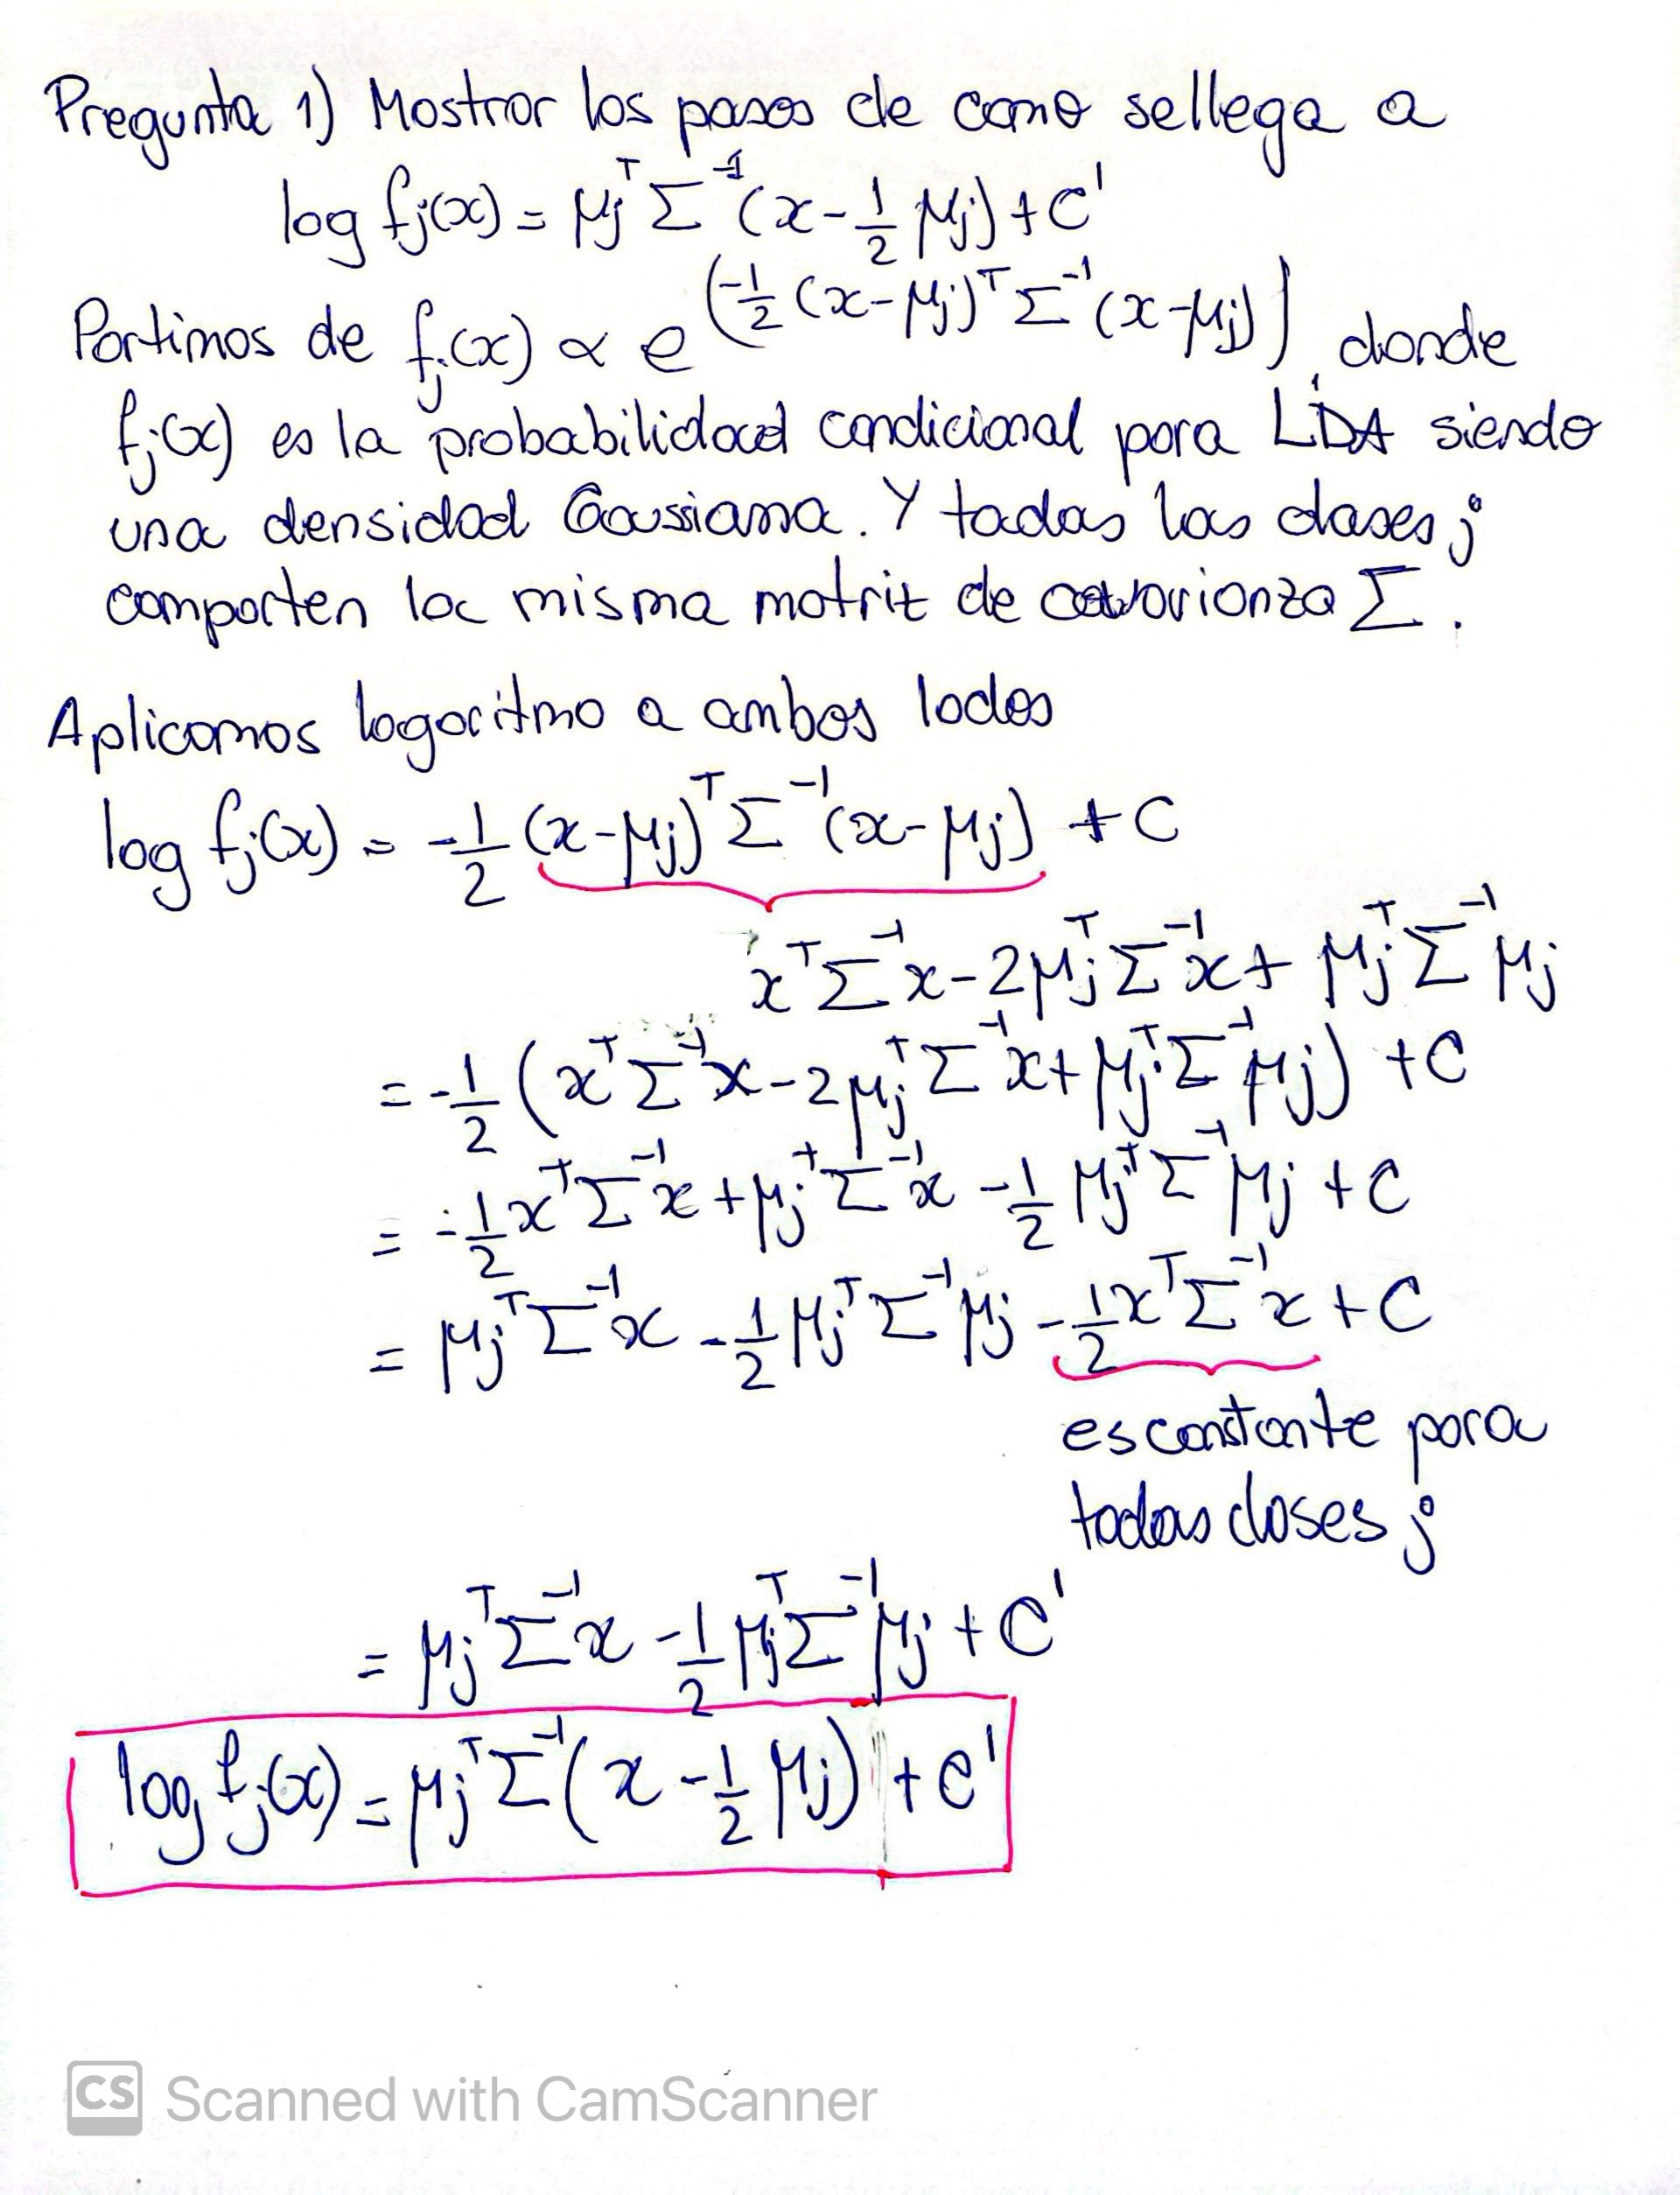 Pregunta 1) Mostrar los pasos de como sellega a
log fj(x) = μj^T Σ^-1 (x - 1/2 μj) + C'
Partimos de fj(x) ∝ e^(-1/2 (x-μj)^T Σ^-1 (x-μj)), donde
fj(x) es la probabilidad condicional para LDA siendo
una densidad Gaussiana. Y todas las clases j
comparten la misma matriz de covarianza Σ.
Aplicamos logaritmo a ambos lados
log fj(x) = -1/2 (x-μj)^T Σ^-1 (x-μj) + C
x^T Σ^-1 x - 2μj^T Σ^-1 x + μj^T Σ^-1 μj
= -1/2 (x^T Σ^-1 x - 2μj^T Σ^-1 x + μj^T Σ^-1 μj) + C
= -1/2 x^T Σ^-1 x + μj^T Σ^-1 x - 1/2 μj^T Σ^-1 μj + C
= μj^T Σ^-1 x - 1/2 μj^T Σ^-1 μj - 1/2 x^T Σ^-1 x + C
es constante para
todas clases j
= μj^T Σ^-1 x - 1/2 μj^T Σ^-1 μj + C'
log fj(x) = μj^T Σ^-1 (x - 1/2 μj) + C'
CS Scanned with CamScanner